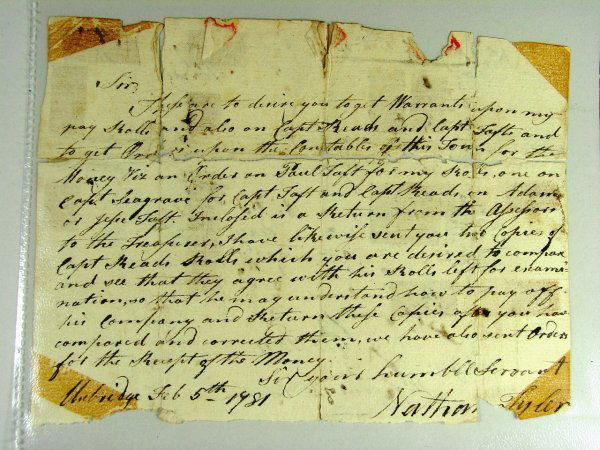 Sir
These are to desire you to get Warrants upon my
pay Rolls and also on Capt Reads and Capt Tafts and
to get Orders upon the Constables of this Town for the
Money Viz an Order on Paul Taft for my Rolls, one on
Capt Seagrave for Capt Taft and Capt Reads on Adams
or Jese Taft Inclosed is a Return from the Assessors
to the Treasurer, I have likewise sent you two Copies of
Capt Reads Rolls which you are desired to compare
and see that they agree with his Rolls left for exami-
nation, so that he may understand how to pay off
his Company and Return these Copies after you have
compared and corrected them, we have also sent Orders
for the Recept of the Money.
Sir your humble Servant
Uxbridge Feb 5th 1781 Nathan Tyler